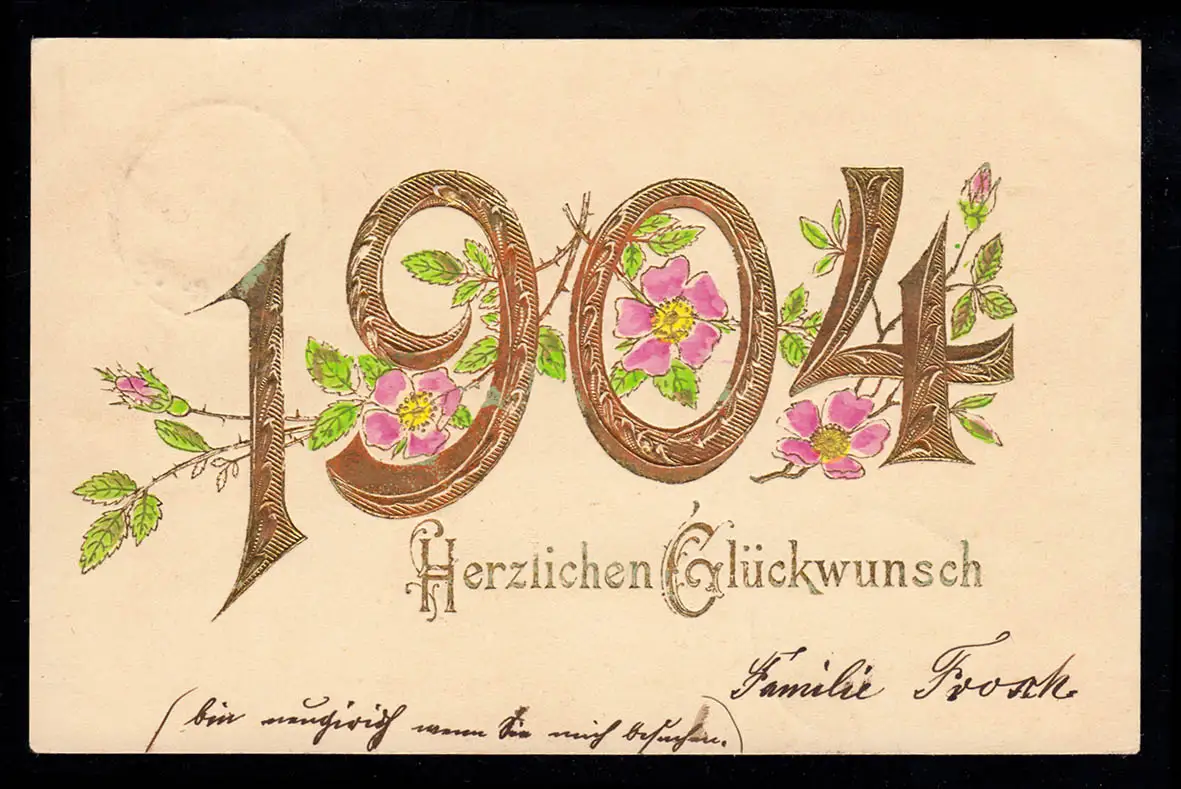 1904
Herzlichen Glückwunsch
Familie Frosch.
(bin neugirich wenn Sie mich besuchen.)